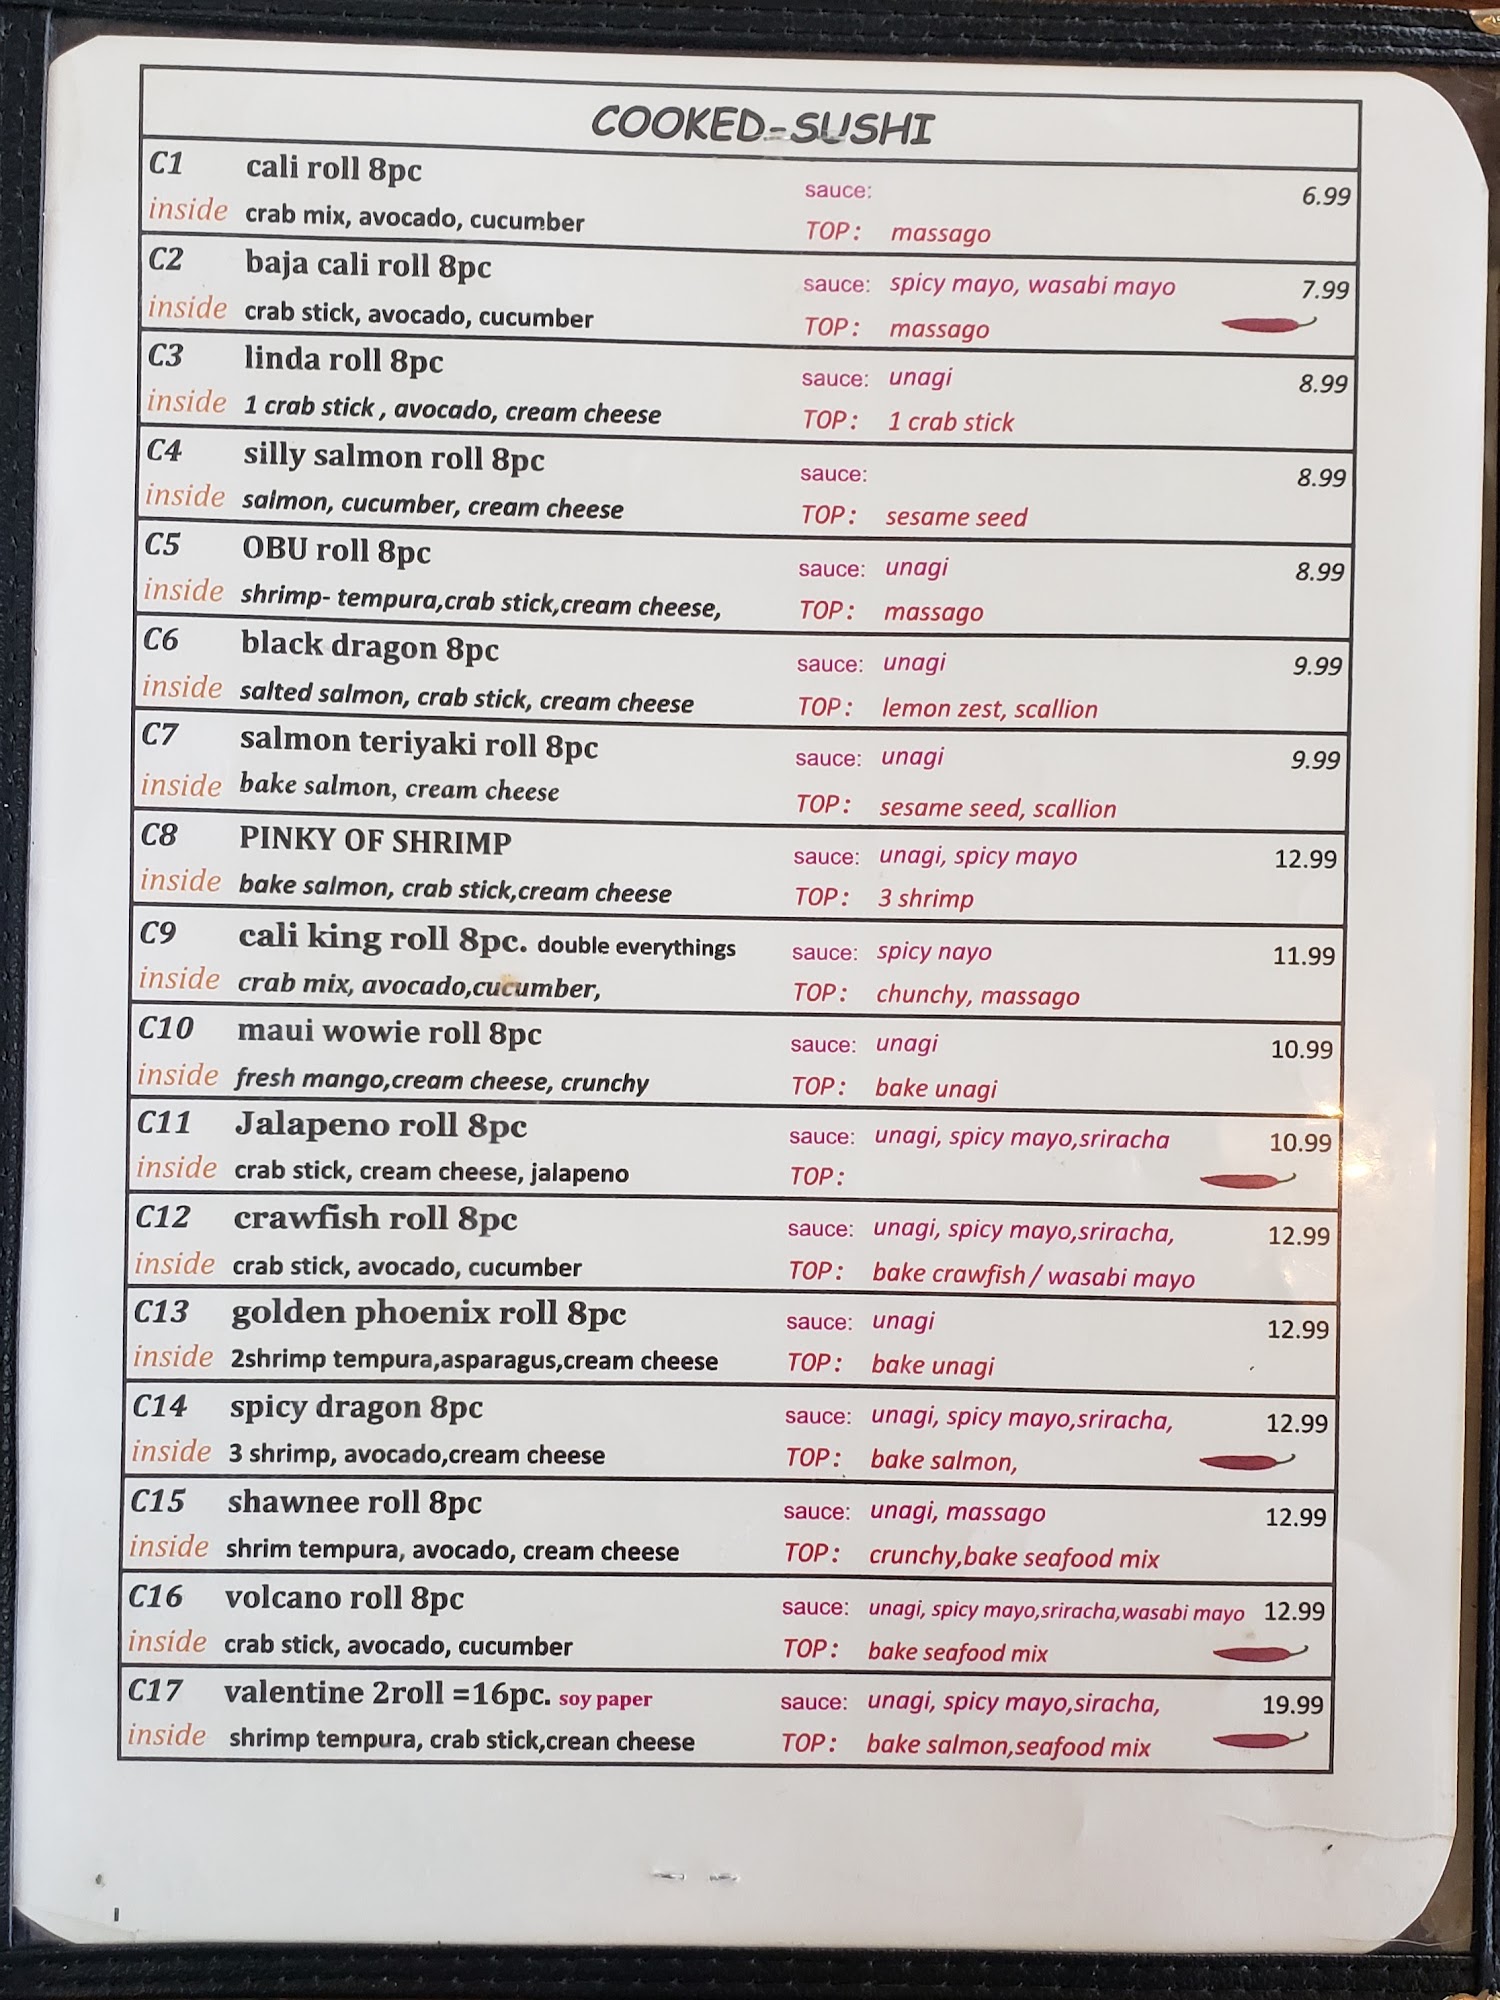 COOKED-SUSHI
C1 cali roll 8pc sauce: 6.99
inside crab mix, avocado, cucumber TOP: massago
C2 baja cali roll 8pc sauce: spicy mayo, wasabi mayo 7.99
inside crab stick, avocado, cucumber TOP: massago
C3 linda roll 8pc sauce: unagi 8.99
inside 1 crab stick , avocado, cream cheese TOP: 1 crab stick
C4 silly salmon roll 8pc sauce: 8.99
inside salmon, cucumber, cream cheese TOP: sesame seed
C5 OBU roll 8pc sauce: unagi 8.99
inside shrimp- tempura,crab stick,cream cheese, TOP: massago
C6 black dragon 8pc sauce: unagi 9.99
inside salted salmon, crab stick, cream cheese TOP: lemon zest, scallion
C7 salmon teriyaki roll 8pc sauce: unagi 9.99
inside bake salmon, cream cheese TOP: sesame seed, scallion
C8 PINKY OF SHRIMP sauce: unagi, spicy mayo 12.99
inside bake salmon, crab stick,cream cheese TOP: 3 shrimp
C9 cali king roll 8pc. double everythings sauce: spicy nayo 11.99
inside crab mix, avocado,cucumber, TOP: chunchy, massago
C10 maui wowie roll 8pc sauce: unagi 10.99
inside fresh mango,cream cheese, crunchy TOP: bake unagi
C11 Jalapeno roll 8pc sauce: unagi, spicy mayo,sriracha 10.99
inside crab stick, cream cheese, jalapeno TOP:
C12 crawfish roll 8pc sauce: unagi, spicy mayo,sriracha, 12.99
inside crab stick, avocado, cucumber TOP: bake crawfish / wasabi mayo
C13 golden phoenix roll 8pc sauce: unagi 12.99
inside 2shrimp tempura,asparagus,cream cheese TOP: bake unagi
C14 spicy dragon 8pc sauce: unagi, spicy mayo,sriracha, 12.99
inside 3 shrimp, avocado,cream cheese TOP: bake salmon,
C15 shawnee roll 8pc sauce: unagi, massago 12.99
inside shrim tempura, avocado, cream cheese TOP: crunchy,bake seafood mix
C16 volcano roll 8pc sauce: unagi, spicy mayo,sriracha,wasabi mayo 12.99
inside crab stick, avocado, cucumber TOP: bake seafood mix
C17 valentine 2roll =16pc. soy paper sauce: unagi, spicy mayo,siracha, 19.99
inside shrimp tempura, crab stick,crean cheese TOP: bake salmon,seafood mix